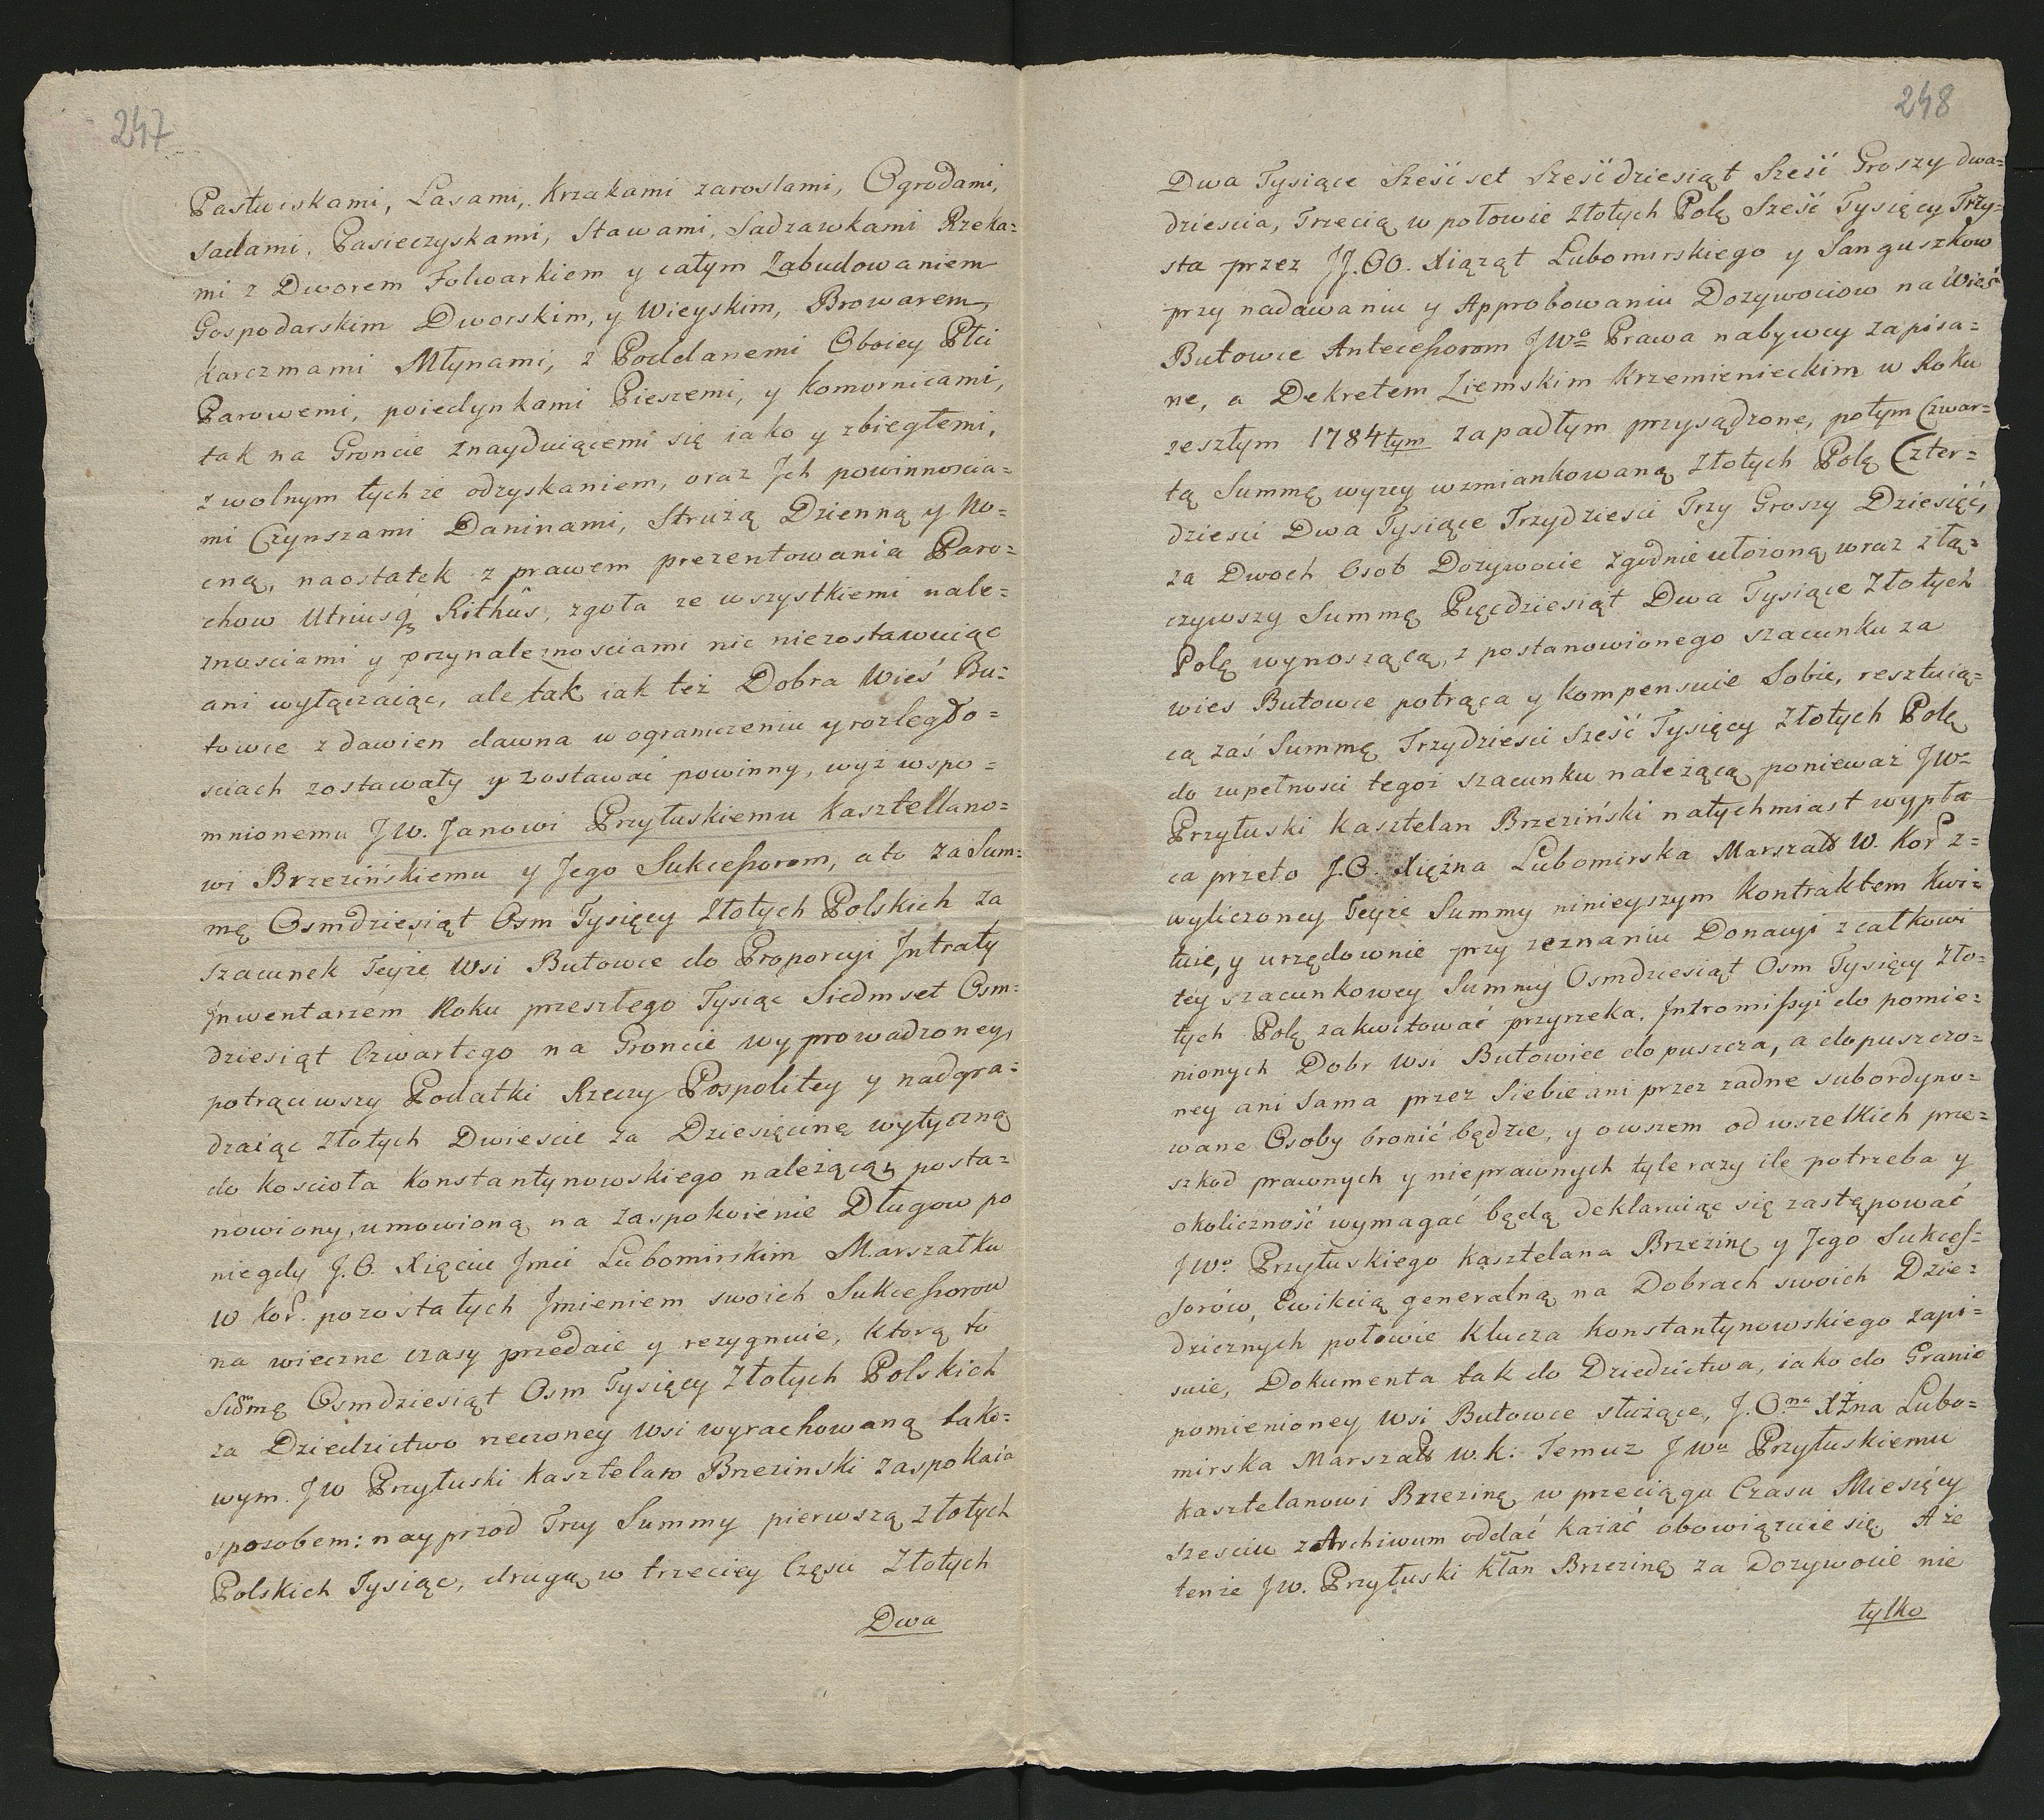 247
Pastwiskami, Lasami, Krzakami zaroslami, Ogrodami,
Sadami, Pasieczyskami, Stawami, Sadzawkami Rzeka=
mi z Dworem Folwarkiem y całym Zabudowaniem
Gospodarskim Dworskim, y Wieyskim, Browarem,
Karczmami Młynami, z Poddanemi Oboiey Płci
Parowemi, poiedynkami Pieszemi, y Komornicami,
tak na Groncie znayduiącemi się iako y zbiegłemi,
z wolnym tychże odzyskaniem, oraz Jch powinnoscia=
mi Czynszami Daninami, Strużą Dzienną y No=
cną, naostatek z prawem prezentowania Paro=
chow Utriusq Rithûs, zgoła ze wszystkiemi nale=
żnosciami y przynależnosciami nic niezostawuiąc
ani wyłączaiąc, ale tak iak też Dobra Wieś Bu=
towce z dawien dawna w ograniczeniu y rozległo=
sciach zostawały y zostawać powinny, wyż wspo=
mnionemu JW. Janowi Przyłuskiemu Kasztellano=
wi Brzezińskiemu y Jego Sukcessorom, a to za Sum=
mę Osmdziesiąt Osm Tysięcy Złotych Polskich za
szacunek Teyże Wsi Butowce do Proporcyi Jntraty
Jnwentarzem Roku przeszłego Tysiąc Siedmset Osm=
dziesiąt Czwartego na Groncie wyprowadzoney,
potrąciwszy Podatki Rzeczy Pospolitey y nadgra=
dzaiąc Złotych Dwieście za Dziesięcinę wytyczną
do Kosciola Konstantynowskiego należącą, posta=
nowiony, umowioną na zaspokoienie Długow po
niegdy J.O. Xięciu Jmci Lubomirskim Marszałku
W Kor. pozostałych Jmieniem swoich Sukcessorow
na wieczne czasy przedaie y rezygnuie, Ktorą to
Summę Osmdziesiąt Osm Tysięcy Złotych Polskich
za Dziedzictwo rzeczoney Wsi wyrachowaną tako=
wym JW Przyłuski Kasztelan Brzezinski zaspokaia
sposobem: nayprzod Trzy Summy pierwszą Złotych
Polskich Tysiąc, drugą w trzeciey Częsci Złotych
Dwa
248
Dwa Tysiące Sześć set Sześćdziesiąt Sześć Groszy dwa=
dziescia, Trzecią w połowie Złotych Polę Sześć Tysięcy Trzy=
sta przez JJ.OO. Xiąząt Lubomirskiego y Sanguszkow
przy nadawaniu y Approbowaniu Dozywociow na Wieś
Butowce Antecessorom JWo Prawa nabywcy zapisa=
ne, a Dekretem Ziemskim Krzemienieckim w Roku
zeszłym 1784tym zapadłym przysądzone, potym Czwar=
tą Summę wyzey wzmiankowaną Złotych Polę Czter=
dziesci Dwa Tysiące Trzydziesci Trzy Groszy Dziesięć,
za Dwoch Osob Dozywocie zgodnie ułożoną wraz złą=
czywszy Summę Pięcdziesiąt Dwa Tysiące Złotych
Polę wynoszącą, z postanowionego szacunku za
wies Butowce potrąca y kompensuie Sobie, resztuią=
cą zaś Summę Trzydziesci Sześć Tysięcy Złotych Polę
do zupełnosci tegoż szacunku należącą ponieważ JW
Przyłuski Kasztelan Brzeziński natychmiast wypła
ca przeto J.O. Xiężna Lubomirska Marszałł W. Kor z=
wyliczoney Teyże Summy ninieyszym Kontraktem Kwi=
tuie, y urzędownie przy zeznaniu Donacyi z całkowi
tey szacunkowey Summy Osmdziesiąt Osm Tysięcy Zło=
tych Polę zakwitować przyrzeka. Jntromissyi do pomie=
nionych Dobr Wsi Butowiec dopuszcza, a dopuszczo=
ney ani Sama przez Siebie ani przez żadne subordyno=
wane Osoby bronić będzie, y owszem od wszelkich prze=
szkod prawnych y nieprawnych tyle razy ile potrzeba y
okoliczność wymagać będą deklaruiąc się zastępować
JWo Przyłuskiego Kasztelana Brzezinę y Jego Sukcess=
sorów, Ewikcią generalną na Dobrach swoich Dzie=
dzicznych połowie Klucza Konstantynowskiego zapi=
suie, Dokumenta tak do Dziedzictwa, iako do Granic
pomienioney Wsi Butowce służące, J.O.na Xżna Lubo=
mirska Marszałł w.k: Temuz JWu Przyłuskiemu
Kasztelanowi Brzezinę w przeciągu Czasu Miesięcy
Szesciu z Archiwum oddać kazać obowiązuie się. A że
tenże JW. Przyłuski Kłan Brzezinę za Dozywocie nie
tylko